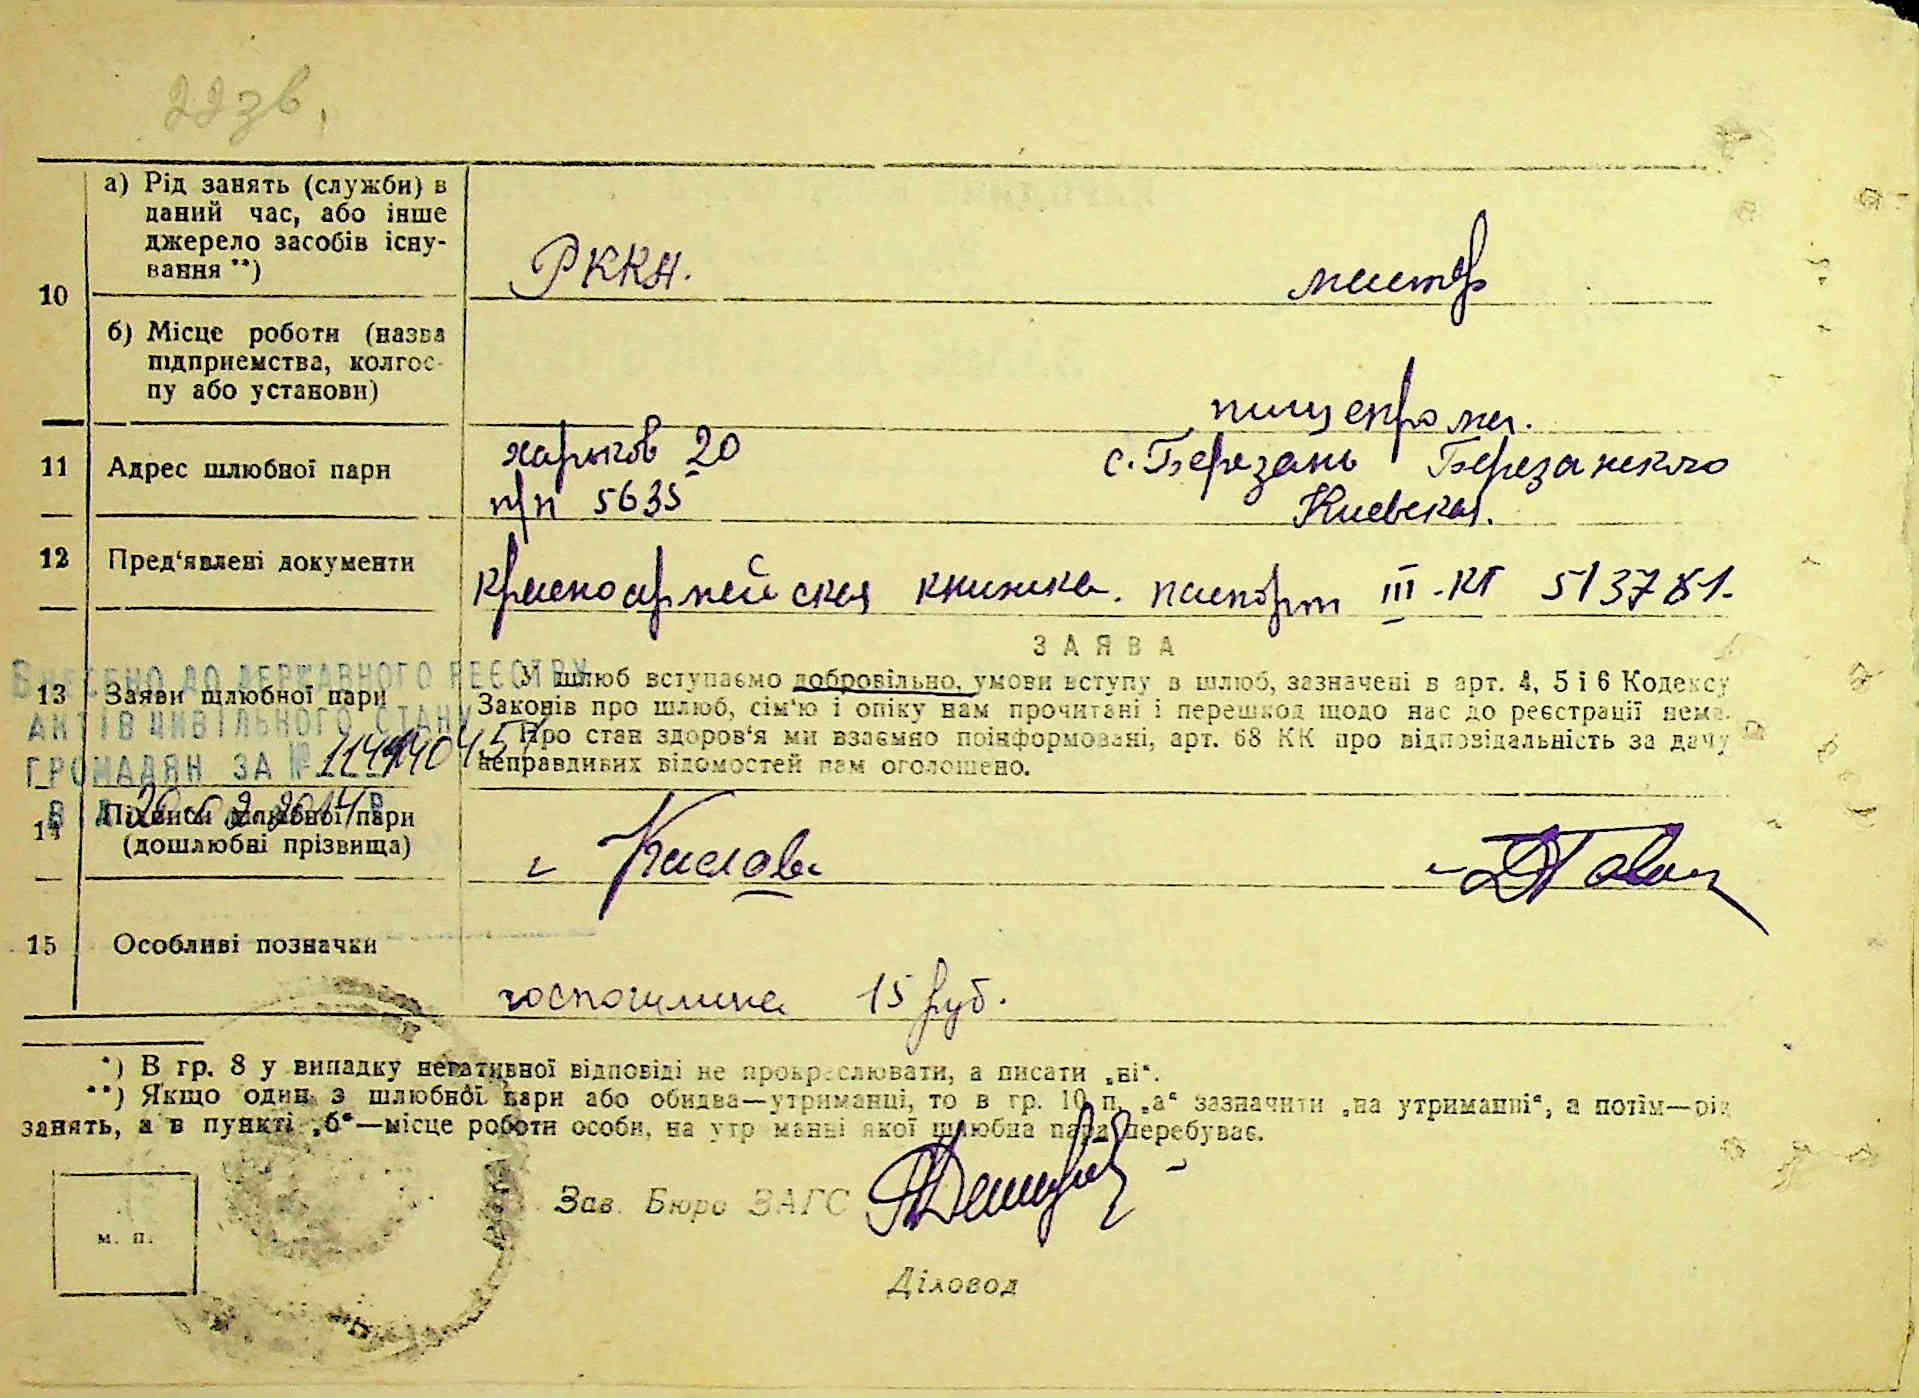 22зв.
а) Рід занять (служби) в
даний час, або інше
джерело засобів існу-
вання **)
РККА.
мастер
10
б) Місце роботи (назва
підприемства, колгос-
пу або установи)
пищепром.
11
Адрес шлюбної пари
харьков 20
п/п 5635
с. Березань Березанского
Киевская.
12
Пред'явлені документи
красноармейская книжка. паспорт III-КГ 513781.
ЗАЯВА
13
Заяви шлюбної пари
У шлюб вступаємо добровільно, умови вступу в шлюб, зазначені в арт. 4, 5 і 6 Кодексу
Законів про шлюб, сім'ю і опіку нам прочитані і перешкод щодо нас до реєстрації нема.
Про стан здоров'я ми взаємно поінформовані, арт. 68 КК про відповідальність за дачу
неправдивих відомостей нам оголошено.
ВНЕСЕНО ДО ДЕРЖАВНОГО РЕЄСТРУ
АКТІВ ЦИВІЛЬНОГО СТАНУ
ГРОМАДЯН ЗА №
14
Підписи шлюбної пари
(дошлюбні прізвища)
15
Особливі позначки
госпошлина 15 руб.
*) В гр. 8 у випадку негативної відповіді не прокреслювати, а писати „ні“.
**) Якщо один з шлюбної пари або обидва—утриманці, то в гр. 10 п. „а“ зазначити „на утриманні“, а потім—рід
занять, а в пункті „б“—місце роботи особи, на утриманні якої шлюбна пара перебуває.
Зав. Бюро ЗАГС
м. п.
Діловод